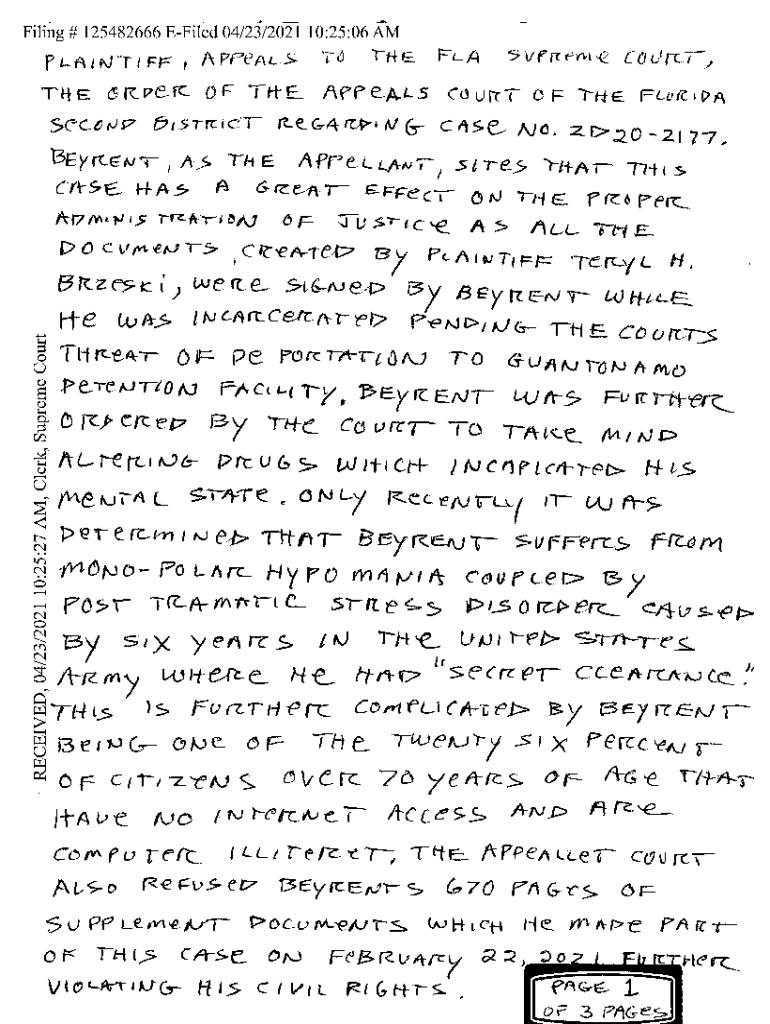 Filing # 125482666 E-Filed 04/23/2021 10:25:06 AM
PLAINTIFF, APPEALS TO THE FLA SUPREME COURT,
THE ORDER OF THE APPEALS COURT OF THE FLORIDA
SECOND DISTRICT REGARDING CASE NO. 2D20-2177.
BEYRENT, AS THE APPELLANT, SITES THAT THIS
CASE HAS A GREAT EFFECT ON THE PROPER
ADMINISTRATION OF JUSTICE AS ALL THE
DOCUMENTS, CREATED BY PLAINTIFF TERYL H.
BRZESKI, WERE SIGNED BY BEYRENT WHILE
HE WAS INCARCERATED PENDING THE COURTS
THREAT OF DEPORTATION TO GUANTONAMO
DETENTION FACILITY. BEYRENT WAS FURTHER
ORDERED BY THE COURT TO TAKE MIND
ALTERING DRUGS WHICH INCAPICATED HIS
MENTAL STATE. ONLY RECENTLY IT WAS
DETERMINED THAT BEYRENT SUFFERS FROM
MONO-POLAR HYPOMANIA COUPLED BY
POST TRAMATIC STRESS DISORDER CAUSED
BY SIX YEARS IN THE UNITED STATES
ARMY WHERE HE HAD "SECRET CLEARANCE."
THIS IS FURTHER COMPLICATED BY BEYRENT
BEING ONE OF THE TWENTY SIX PERCENT
OF CITIZENS OVER 70 YEARS OF AGE THAT
HAVE NO INTERNET ACCESS AND ARE
COMPUTER ILLITERET, THE APPEALLET COURT
ALSO REFUSED BEYRENTS 670 PAGES OF
SUPPLEMENT DOCUMENTS WHICH HE MADE PART
OF THIS CASE ON FEBRUARY 22, 2021 FURTHER
VIOLATING HIS CIVIL RIGHTS.
PAGE 1
OF 3 PAGES
RECEIVED, 04/23/2021 10:25:27 AM, Clerk, Supreme Court